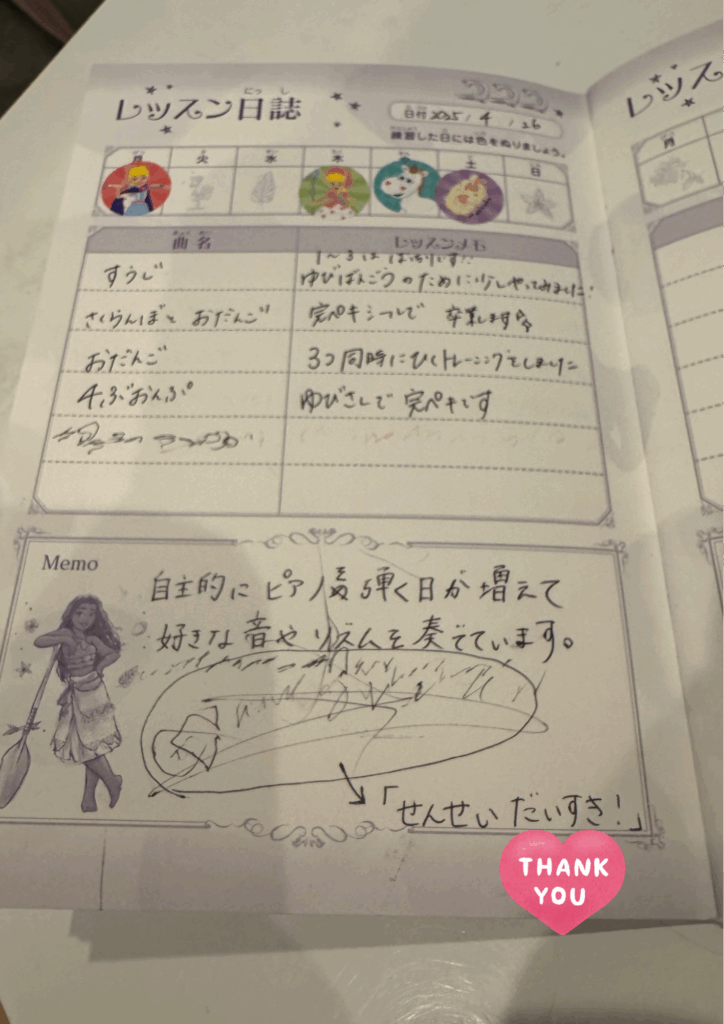 にっし
レッスン日誌
日付 2025 / 4 / 26
練習した日には色をぬりましょう。
月 火 水 木 土 日
曲名 レッスンメモ
すうじ
ゆびばんごうのために少しやってみました!
さくらんぼと おだんご 完ペキシールで 卒業します
おだんご 3つ同時にひくトレーニングをしました
4ぶおんぷ ゆびさしで 完ペキです
Memo
自主的に ピアノを 弾く日が 増えて
好きな 音や リズムを 奏でています。
「せんせい だいすき!」
THANK
YOU
レッス
月